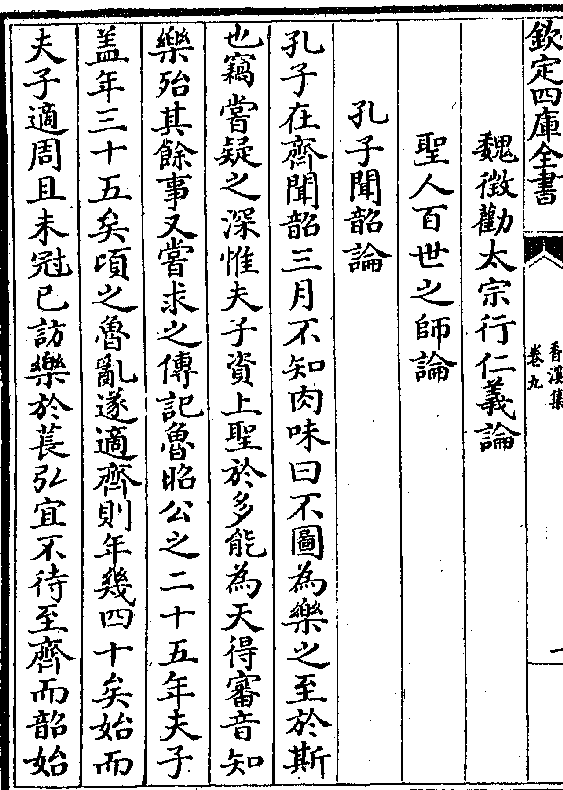 欽定四庫全書
香溪集
卷九
一
魏徵勸太宗行仁義論
聖人百世之師論
孔子聞韶論
孔子在齊聞韶三月不知肉味曰不圖為樂之至於斯
也竊嘗疑之深惟夫子資上聖於多能為天得審音知
樂殆其餘事又嘗求之傳記魯昭公之二十五年夫子
盖年三十五矣頃之魯亂遂適齊則年幾四十矣始而
夫子適周且未冠已訪樂於萇弘宜不待至齊而韶始